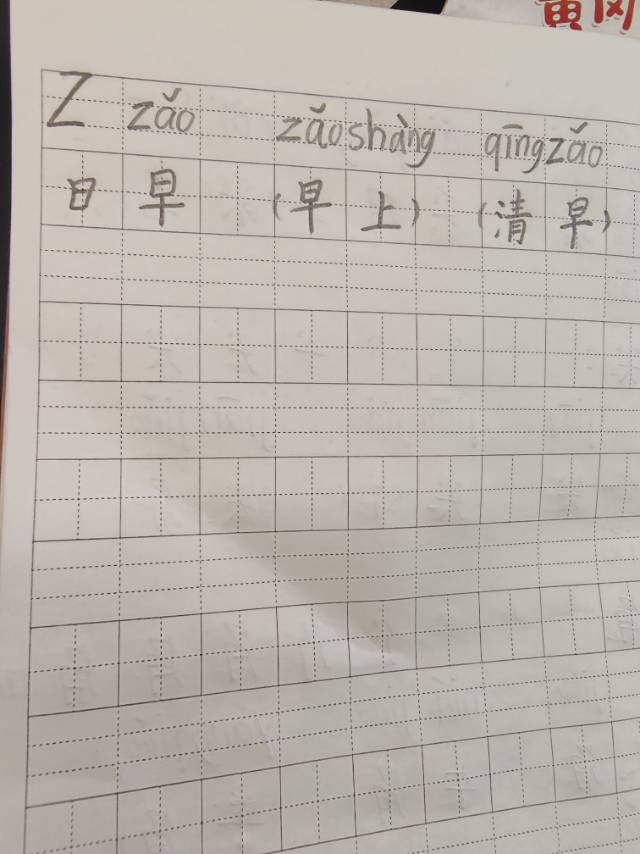 黄冈
Z zǎo zǎoshàng qīngzǎo
日 早 (早上) (清早)